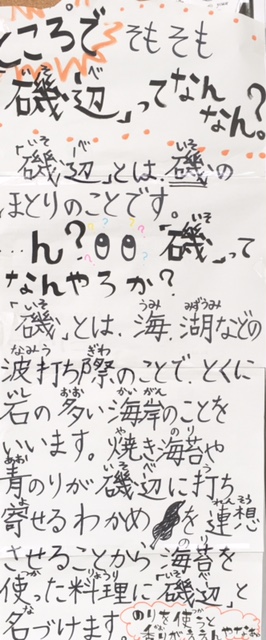 ところで そもそも
「磯辺」ってなんなん。?
「磯辺」とは、磯の
ほとりのことです。
…ん? 「磯」って
なんやろか?
「磯」とは、海、湖などの
波打ち際のことで、とくに
石の多い海岸のことを
いいます。焼き海苔や
青のりが磯辺に打ち
寄せるわかめを連想
させることから海苔を
使った料理に「磯辺」と
名づけます。
のりを使うと